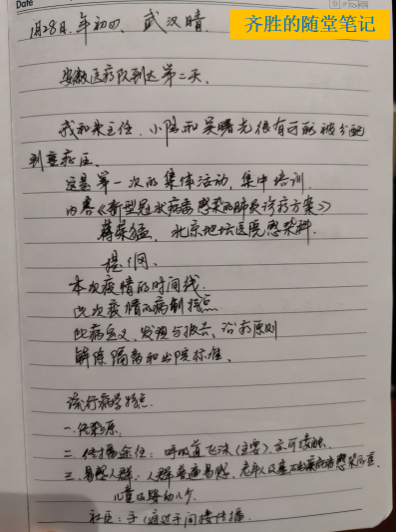 Date
齐胜的随堂笔记
1月28日，年初四、武汉晴．
安徽医疗队到达第二天．
我和朱主任，小陈和吴曙光很有可能被分配
到重症区、
这是第一次的集体活动，集中培训．
内容《新型冠状病毒感染的肺炎诊疗方案》
蒋荣猛，北京地坛医院感染科．
提纲．
本次疫情的时间线．
此次疫情的病例特点
此病定义、发现与报告、治疗原则
解除隔离和出院标准、
流行病学特点．
一．传染源．
二．传播途径：呼吸道飞沫（主要）、亦可接触．
三．易感人群：人群普遍易感，老年人及
儿童及婴幼儿少．